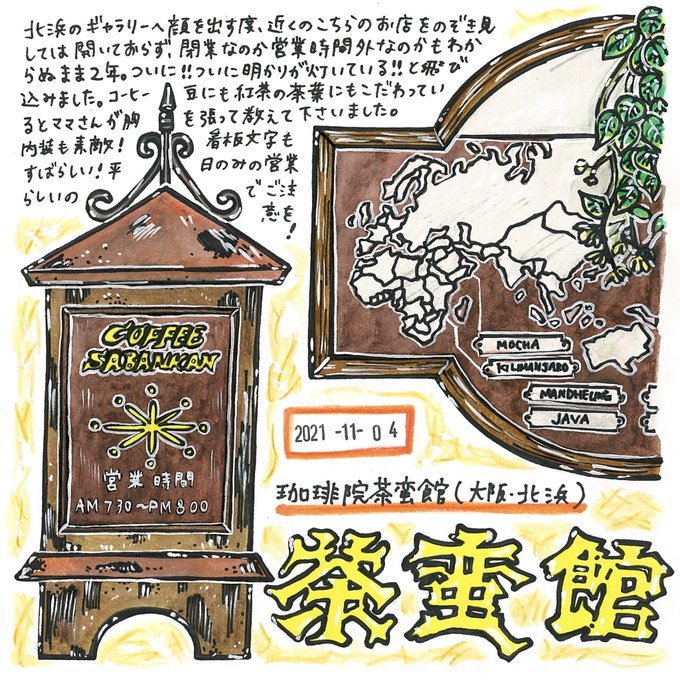 北浜のギャラリーへ顔を出す度、近くのこちらのお店をのぞき見
しては開いておらず閉業なのか営業時間外なのかもわか
らぬまま2年。ついに!!ついに明かりが灯いている!!と飛び
込みました。コーヒー豆にも紅茶の茶葉にもこだわってい
るとママさんが胸を張って教えて下さいました。
内装も素敵!看板文字も
すばらしい!平日のみの営業
らしいのでご注
意を!
COFFEE
SABANKAN
営業時間
AM730〜PM800
MOCHA
KILIMANJARO
MANDHELING
JAVA
2021-11-04
珈琲院茶蛮館(大阪・北浜)
茶蛮館